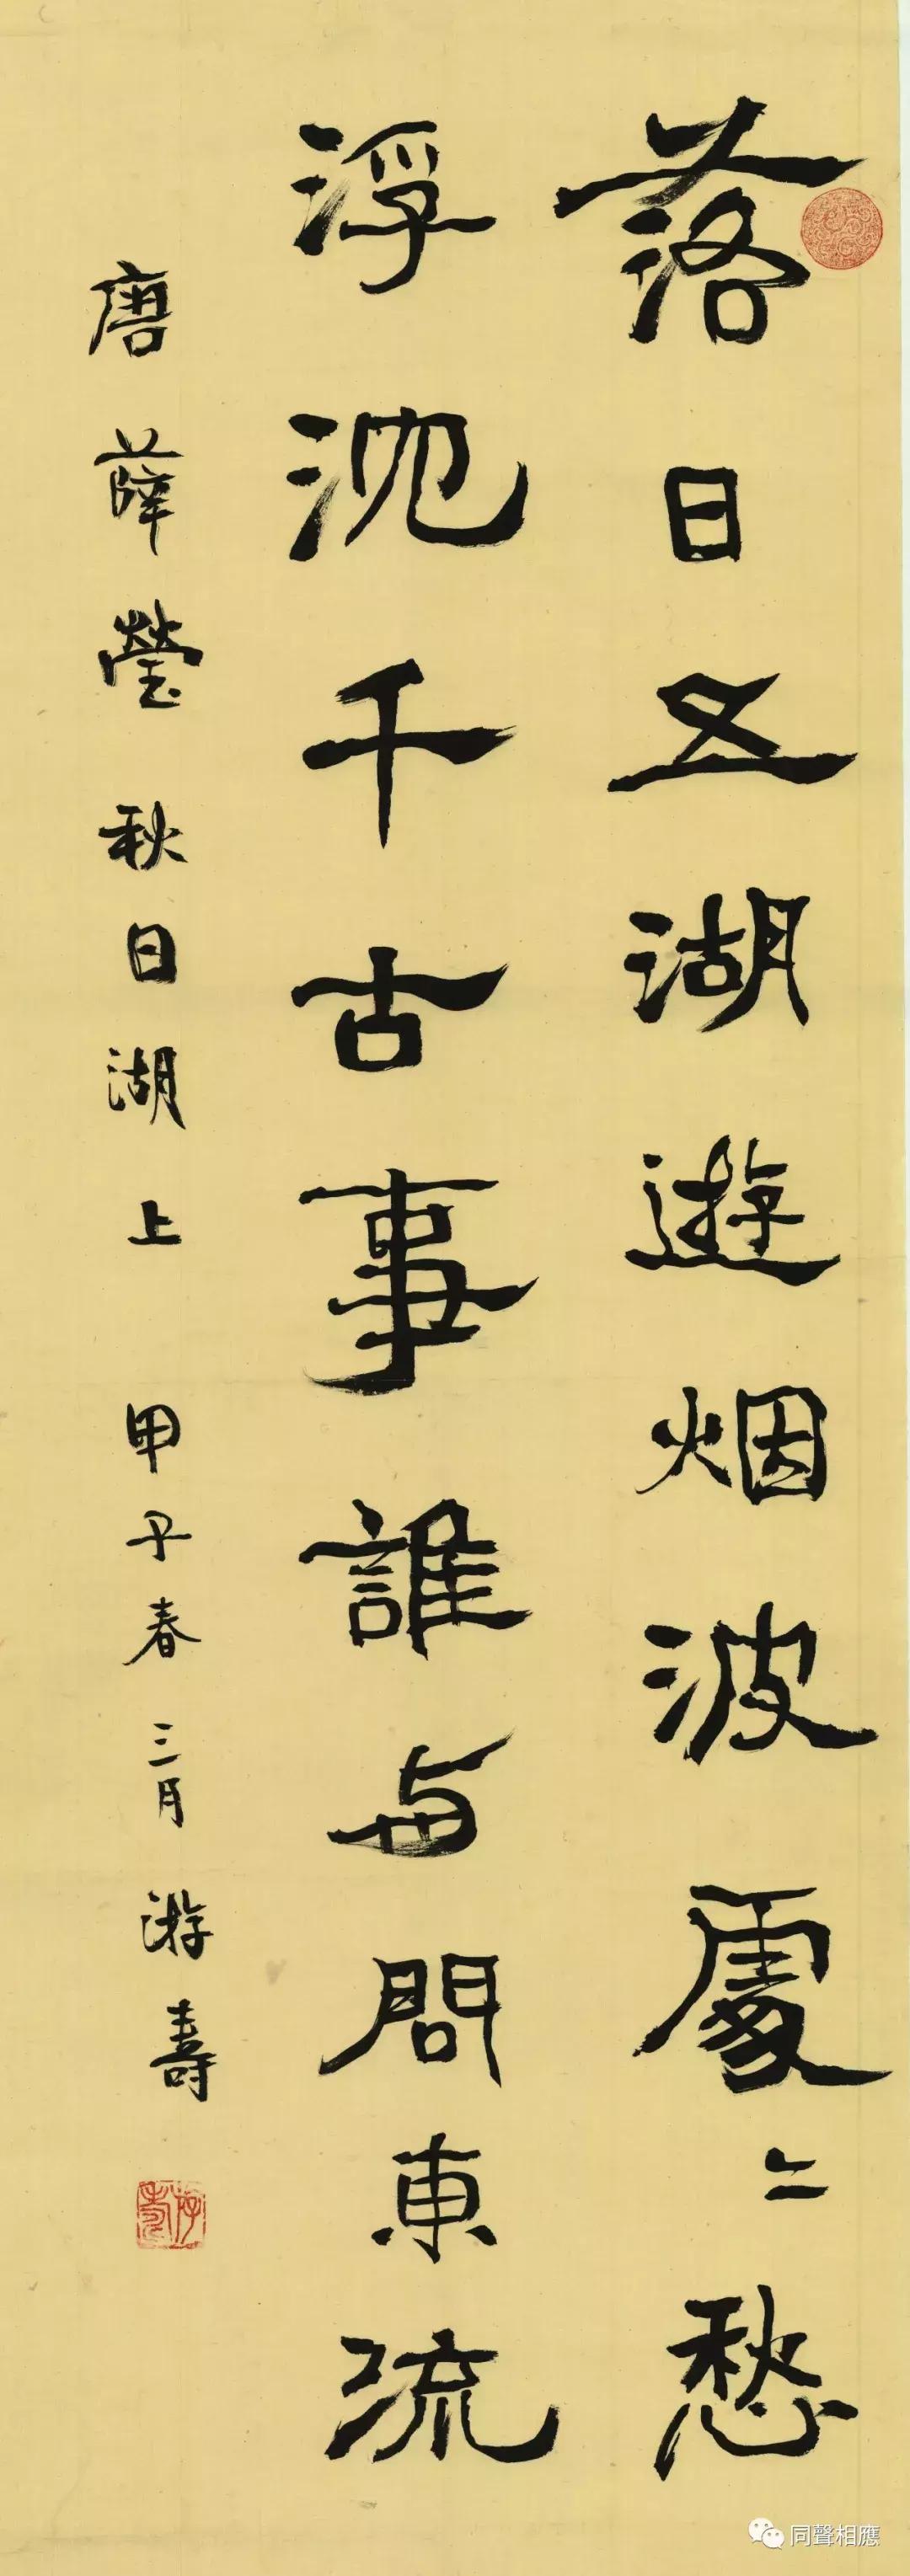 落日五湖遊烟波處〻愁
浮沈千古事誰与問東流
唐薛瑩秋日湖上 甲子春三月 游壽
游壽
同聲相應